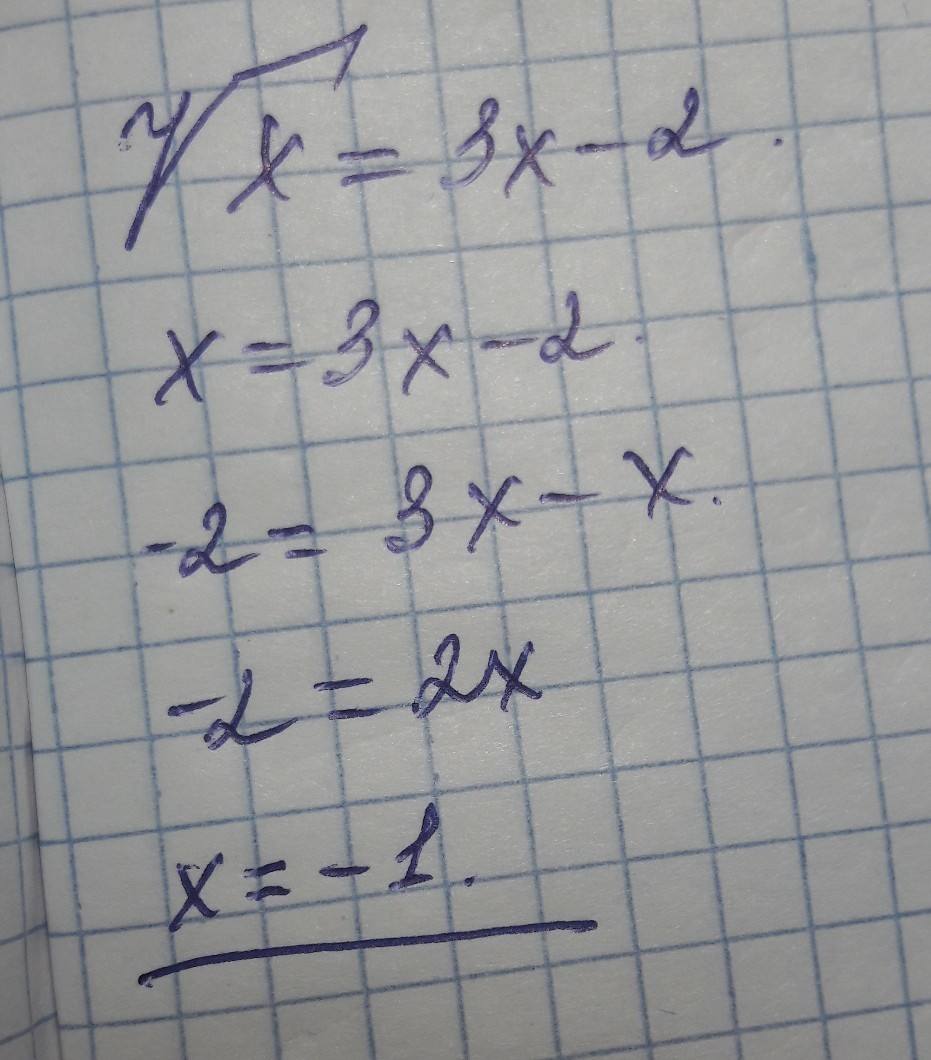 √x = 3x - 2.
x = 3x - 2.
-2 = 3x - x.
-2 = 2x
x = -1.